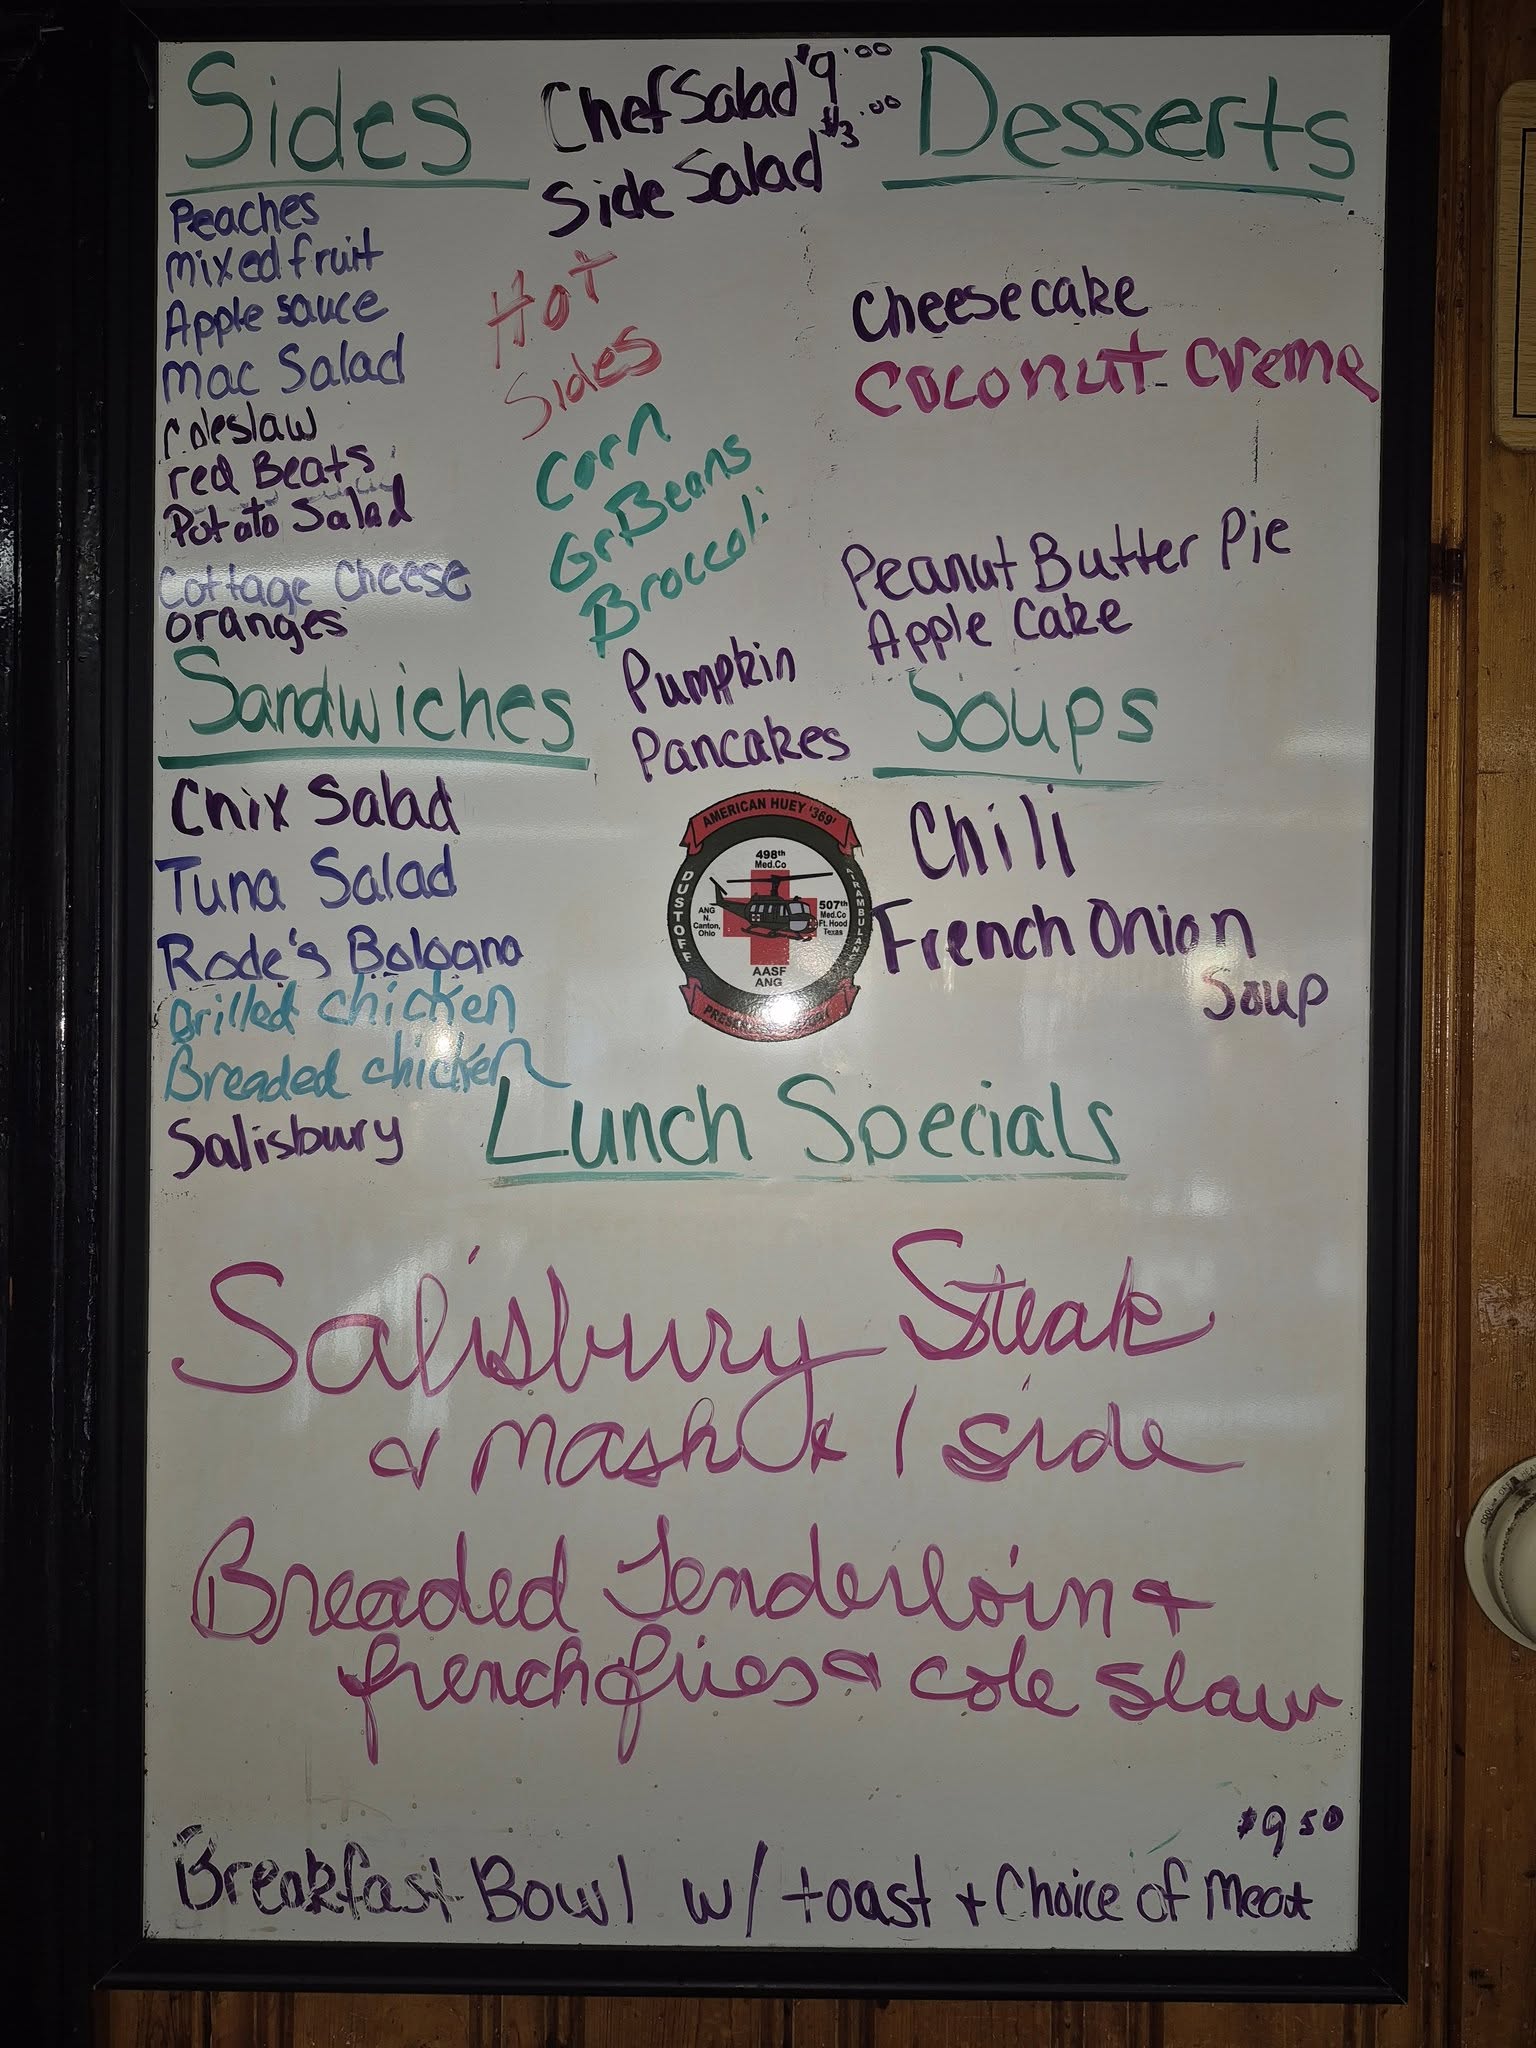 Sides
Peaches
mixed fruit
Apple sauce
Mac Salad
Coleslaw
red Beats
Potato Salad
Cottage Cheese
oranges
Chef Salad $9.00
Side Salad $3.00
Hot
Sides
Corn
Gr. Beans
Broccoli
Pumpkin
Pancakes
Desserts
Cheesecake
Coconut Creme
Peanut Butter Pie
Apple Cake
Sandwiches
Chix Salad
Tuna Salad
Rode's Bologna
Grilled chicken
Breaded chicken
Salisbury
AMERICAN HUEY '369'
498th
Med.Co
DUSTOFF
AIRAMBULANCE
ANG
N.
Canton,
Ohio
507th
Med.Co
Ft. Hood
Texas
AASF
ANG
Soups
Chili
French Onion
Soup
Lunch Specials
Salisbury Steak
& mash & 1 side
Breaded Tenderloin &
french fries & cole slaw
$9 50
Breakfast Bowl w/ toast + Choice of Meat